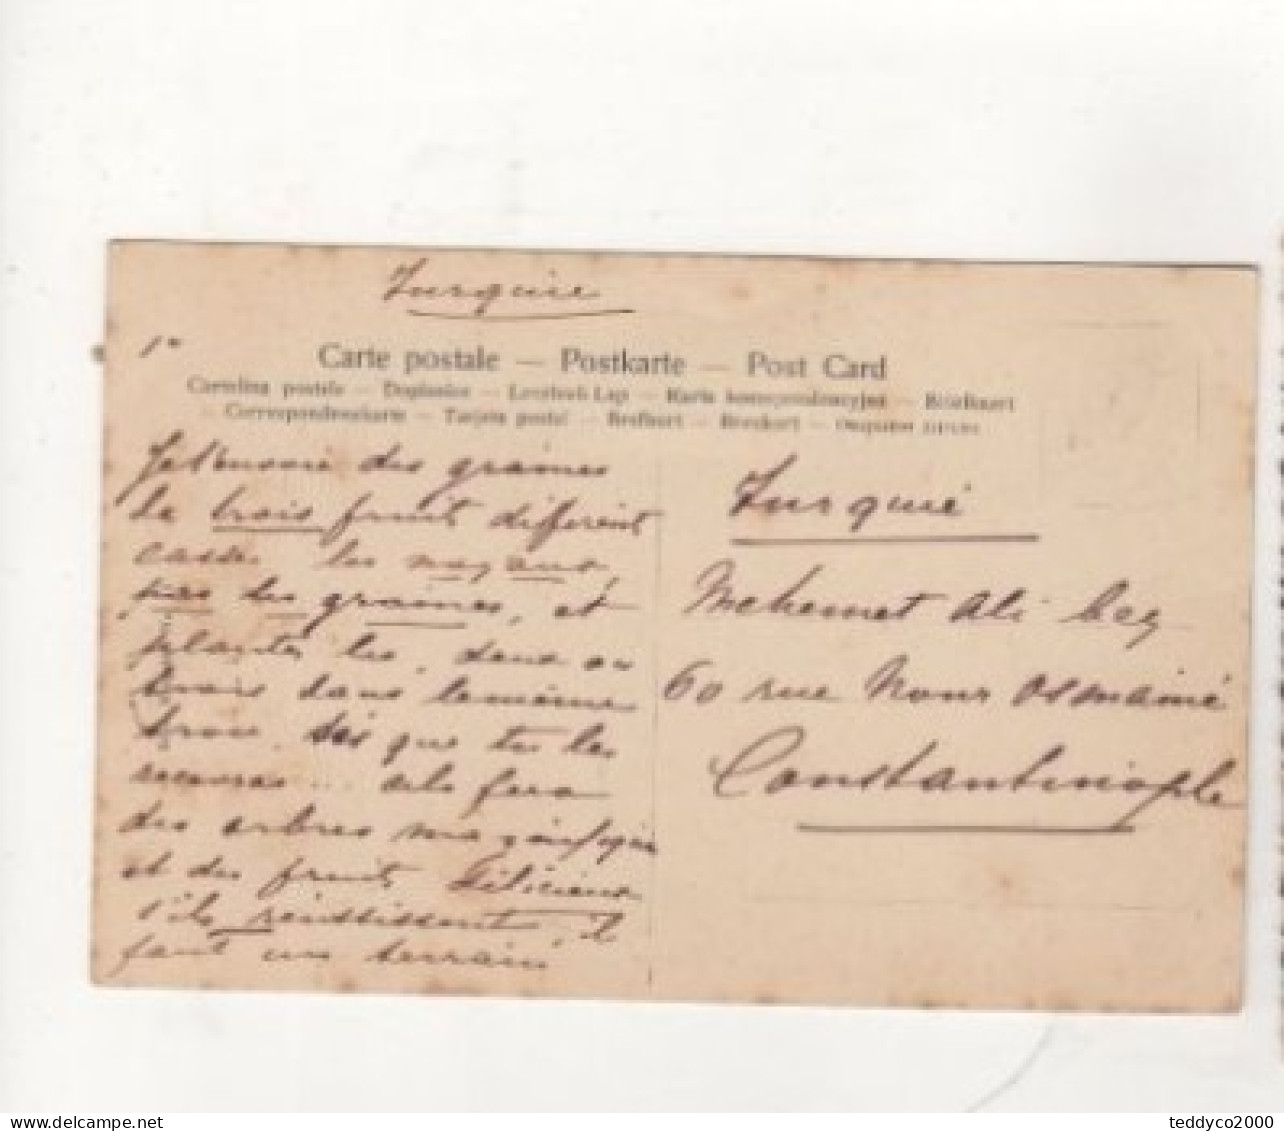 Turquie
1°
Carte postale — Postkarte — Post Card
Cartolina postale — Dopisnice — Levelezö-Lap — Karta korespondencyjna — Briefkaart
— Correspondenzkarte — Tarjeta postal — Brefkort — Brevkort —
Je t'envoie des graines
de trois fruit different
casse les noyaux,
les graines, et
plantes les, deux ou
trois dans lemême
trou, dès que tu les
recevras... cela fera
des arbres magnifique
et des fruits délicieux
s'ils réussissent, il
faut un terrain
Turquié
Mehemet Ali bey
60 rue Nour osmanié
Constantinople
teddyco2000